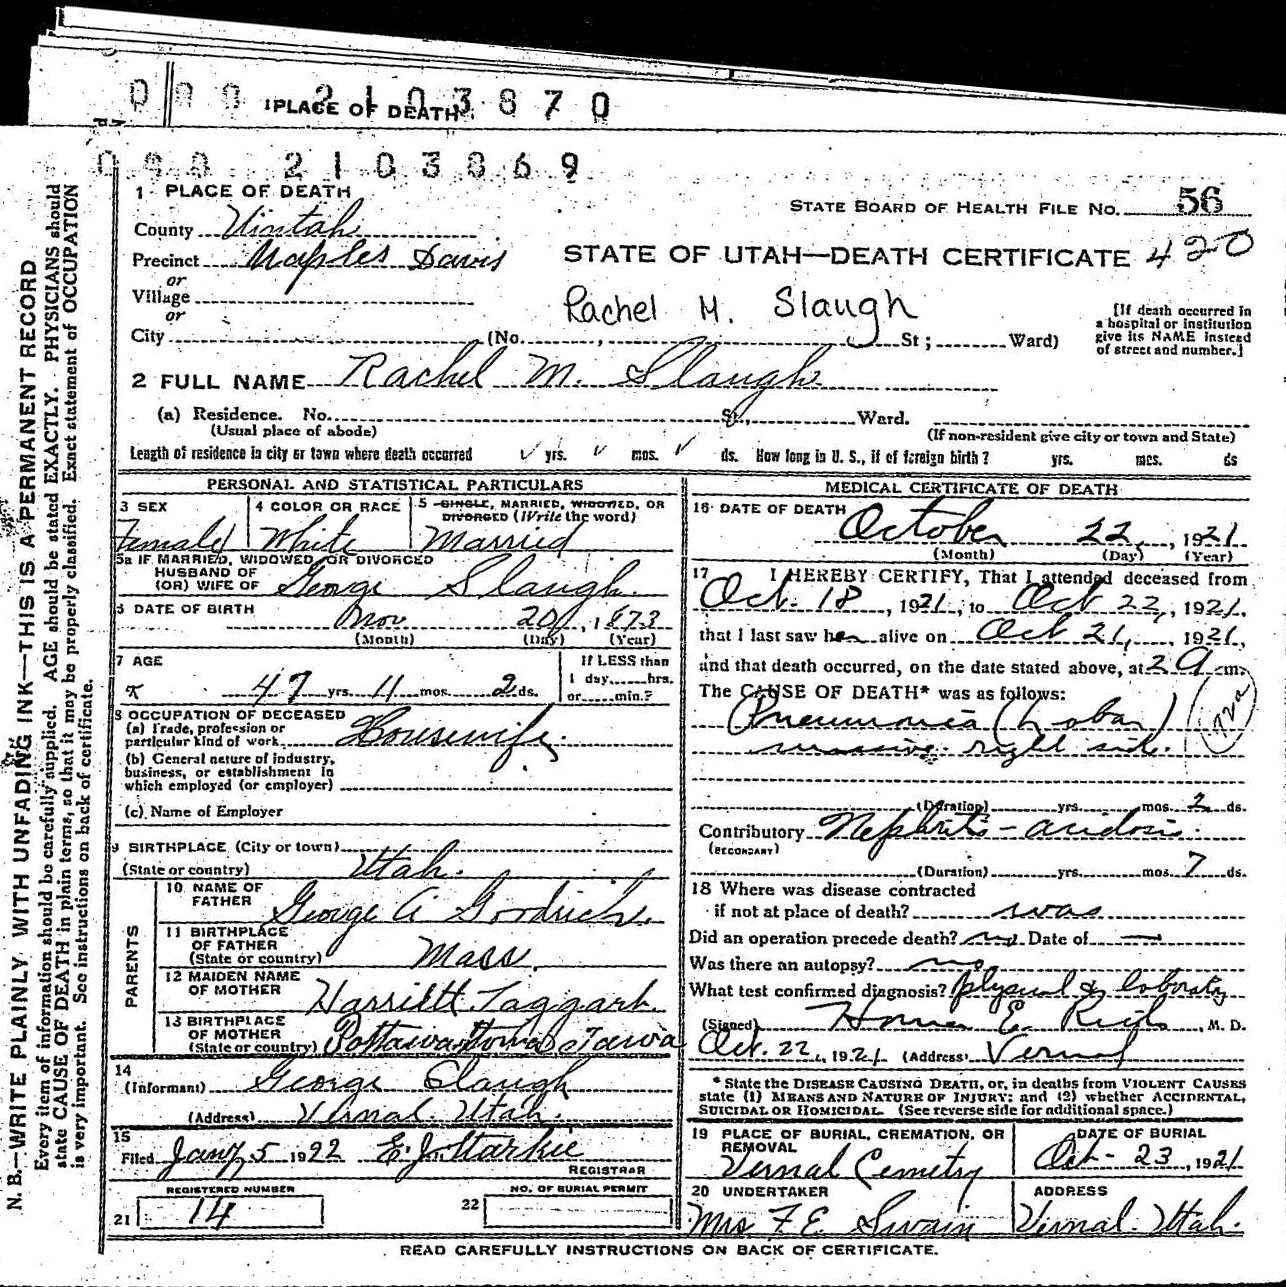 000 2103870
1 PLACE OF DEATH
000 2103869
1 PLACE OF DEATH
STATE BOARD OF HEALTH FILE NO. 56
County Uintah
Precinct Naples Davis
STATE OF UTAH—DEATH CERTIFICATE 420
or
Village
or
Rachel M. Slaugh
City (No. , St; Ward)
[If death occurred in a hospital or institution give its NAME instead of street and number.]
2 FULL NAME Rachel M. Slaugh
(a) Residence. No. St., Ward.
(Usual place of abode) (If non-resident give city or town and State)
Length of residence in city or town where death occurred yrs. mos. ds. How long in U. S., if of foreign birth? yrs. mos. ds
PERSONAL AND STATISTICAL PARTICULARS
3 SEX Female
4 COLOR OR RACE White
5 SINGLE, MARRIED, WIDOWED, OR DIVORCED (Write the word) Married
5a IF MARRIED, WIDOWED, OR DIVORCED
HUSBAND OF
(OR) WIFE OF George Slaugh
6 DATE OF BIRTH Nov 20, 1873
(Month) (Day) (Year)
7 AGE
47 yrs. 11 mos. 2 ds.
If LESS than
1 day hrs.
or min.?
8 OCCUPATION OF DECEASED
(a) Trade, profession or
particular kind of work Housewife.
(b) General nature of industry,
business, or establishment in
which employed (or employer)
(c) Name of Employer
9 BIRTHPLACE (City or town)
(State or country) Utah.
PARENTS
10 NAME OF
FATHER George A Goodrich.
11 BIRTHPLACE
OF FATHER
(State or country) Mass.
12 MAIDEN NAME
OF MOTHER Harriett Taggart.
13 BIRTHPLACE
OF MOTHER
(State or country) Iowa
14
(Informant) George Slaugh
(Address) Vernal Utah.
15
Filed Jany 5 1922 E. J. Starkie
REGISTRAR
REGISTERED NUMBER
21 14
NO. OF BURIAL PERMIT
22
MEDICAL CERTIFICATE OF DEATH
16 DATE OF DEATH October 22, 1921
(Month) (Day) (Year)
17 I HEREBY CERTIFY, That I attended deceased from
Oct. 18, 1921, to Oct 22, 1921.
that I last saw her alive on Oct 21, 1921,
and that death occurred, on the date stated above, at 2 a m.
The CAUSE OF DEATH* was as follows:
Pneumonia (Lobar)
massive right side.
(Duration) yrs. mos. 2 ds.
Contributory Nephritis - acidosis.
(SECONDARY)
(Duration) yrs. mos. 7 ds.
18 Where was disease contracted
if not at place of death? was
Did an operation precede death? no Date of —
Was there an autopsy? no
What test confirmed diagnosis? physical & laboratory
(Signed) Homer E. , M. D.
Oct. 22, 1921 (Address) Vernal
* State the DISEASE CAUSING DEATH, or, in deaths from VIOLENT CAUSES
state (1) MEANS AND NATURE OF INJURY; and (2) whether ACCIDENTAL,
SUICIDAL OR HOMICIDAL. (See reverse side for additional space.)
19 PLACE OF BURIAL, CREMATION, OR
REMOVAL
Vernal Cemetry
DATE OF BURIAL
Oct- 23, 1921
20 UNDERTAKER
Mrs F. E. Swain
ADDRESS
Vernal Utah.
READ CAREFULLY INSTRUCTIONS ON BACK OF CERTIFICATE.
N. B.—WRITE PLAINLY WITH UNFADING INK—THIS IS A PERMANENT RECORD
Every item of information should be carefully supplied. AGE should be stated EXACTLY. PHYSICIANS should
state CAUSE OF DEATH in plain terms, so that it may be properly classified. Exact statement of OCCUPATION
is very important. See instructions on back of certificate.